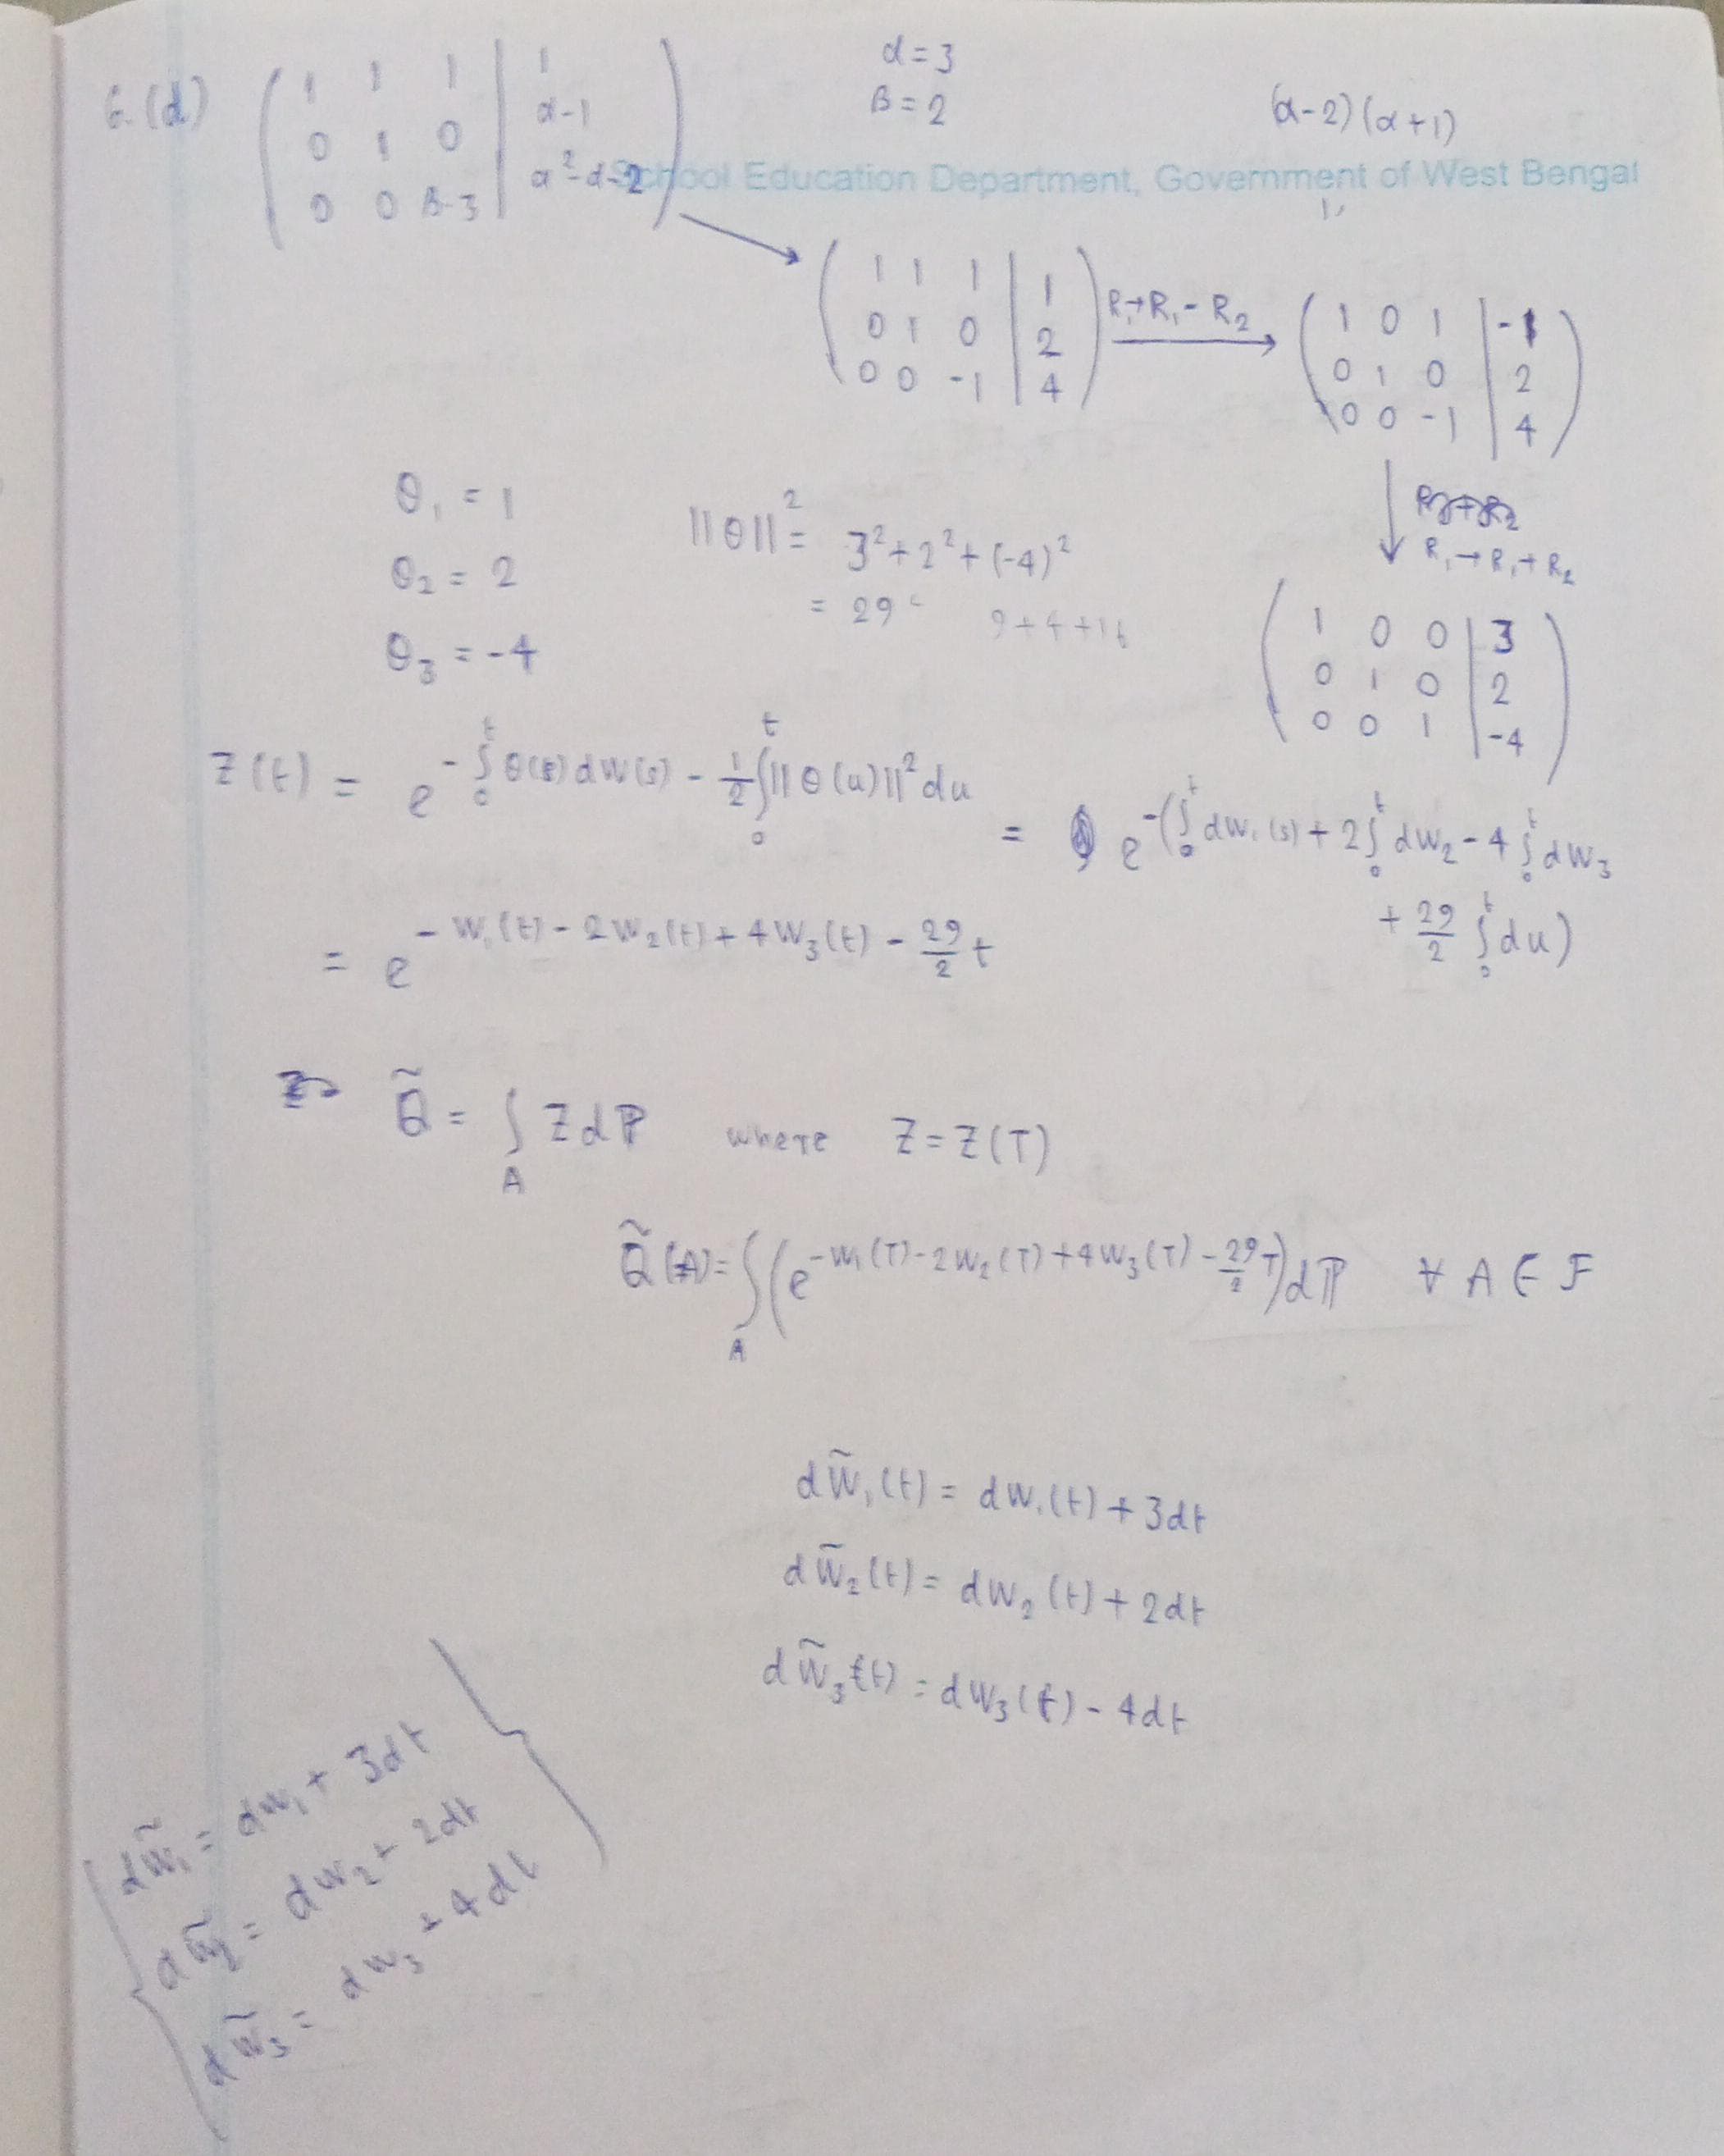 6.(d) ( 1 1 1 | 1
0 1 0 | α-1
0 0 β-3 | α²-α-2 )
α = 3
β = 2
(α-2)(α+1)
School Education Department, Government of West Bengal
( 1 1 1 | 1
0 1 0 | 2
0 0 -1 | 4 )
R₁→R₁-R₂
( 1 0 1 | -1
0 1 0 | 2
0 0 -1 | 4 )
R₁→R₁+R₂
( 1 0 0 | 3
0 1 0 | 2
0 0 1 | -4 )
θ₁ = 1
θ₂ = 2
θ₃ = -4
||θ||² = 3²+2²+(-4)²
= 29 9+4+16
Z(t) = e^{-∫₀ᵗ θ(s)dW(s) - 1/2 ∫₀ᵗ ||θ(u)||² du}
= e^{-(∫₀ᵗ dW₁(s) + 2∫₀ᵗ dW₂ - 4∫₀ᵗ dW₃ + 29/2 ∫₀ᵗ du)}
= e^{-W₁(t) - 2W₂(t) + 4W₃(t) - 29/2 t}
Q̃ = ∫_A Z dℙ where Z = Z(T)
Q̃(A) = ∫_A (e^{-W₁(T) - 2W₂(T) + 4W₃(T) - 29/2 T}) dℙ ∀ A ∈ F
dW̃₁(t) = dW₁(t) + 3dt
dW̃₂(t) = dW₂(t) + 2dt
dW̃₃(t) = dW₃(t) - 4dt
dW̃₁ = dW₁ + 3dt
dW̃₂ = dW₂ + 2dt
dW̃₃ = dW₃ + 4dt